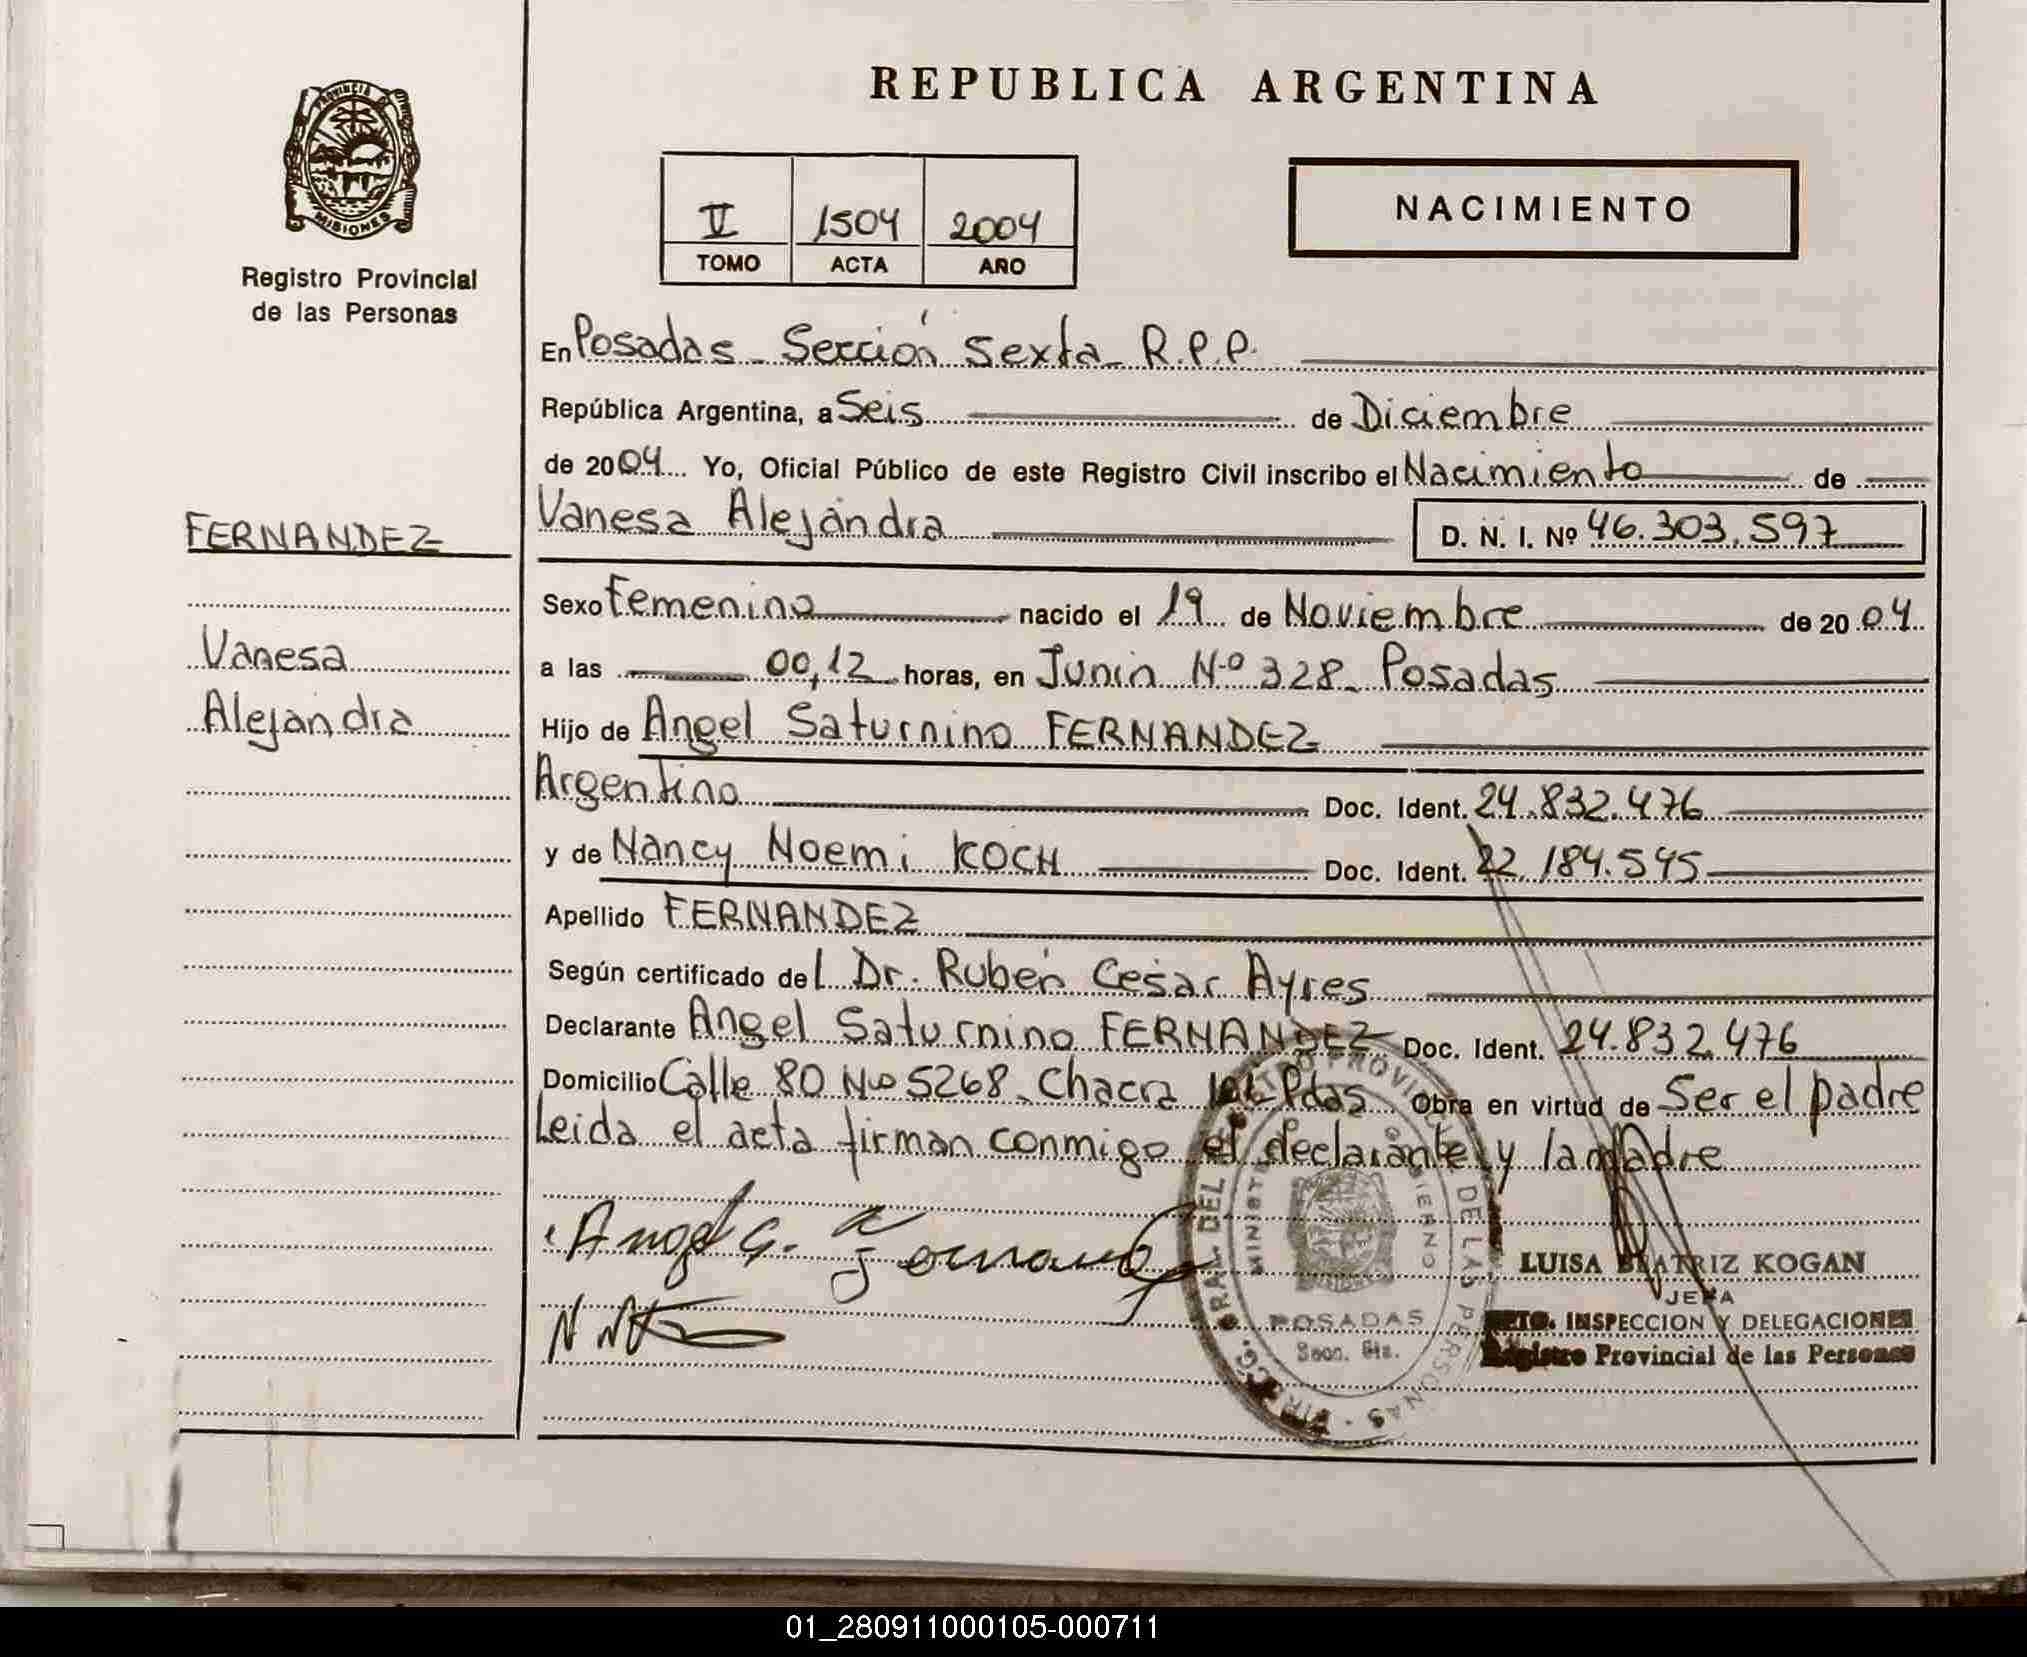 PROVINCIA DE
MISIONES
Registro Provincial
de las Personas
FERNANDEZ
Vanesa
Alejandra
REPUBLICA ARGENTINA
II 1504 2004
TOMO ACTA AÑO
NACIMIENTO
En Posadas - Sección Sexta - R.P.P.
República Argentina, a Seis de Diciembre
de 2004 Yo, Oficial Público de este Registro Civil inscribo el Nacimiento de
Vanesa Alejandra D. N. I. Nº 46.303.597
Sexo Femenino nacido el 19 de Noviembre de 2004
a las 00,12 horas, en Junín Nº 328 - Posadas
Hijo de Angel Saturnino FERNANDEZ
Argentino Doc. Ident. 24.832.476
y de Nancy Noemi KOCH Doc. Ident. 22.184.545
Apellido FERNANDEZ
Según certificado del Dr. Rubén Cesar Ayres
Declarante Angel Saturnino FERNANDEZ Doc. Ident. 24.832.476
Domicilio Calle 80 Nº 5268 - Chacra Pdas Obra en virtud de Ser el padre
Leida el acta firman conmigo el declarante y la madre
POSADAS
Secc. 6ta.
LUISA BEATRIZ KOGAN
JEFA
DPTO. INSPECCION Y DELEGACIONES
Registro Provincial de las Personas
01_280911000105-000711